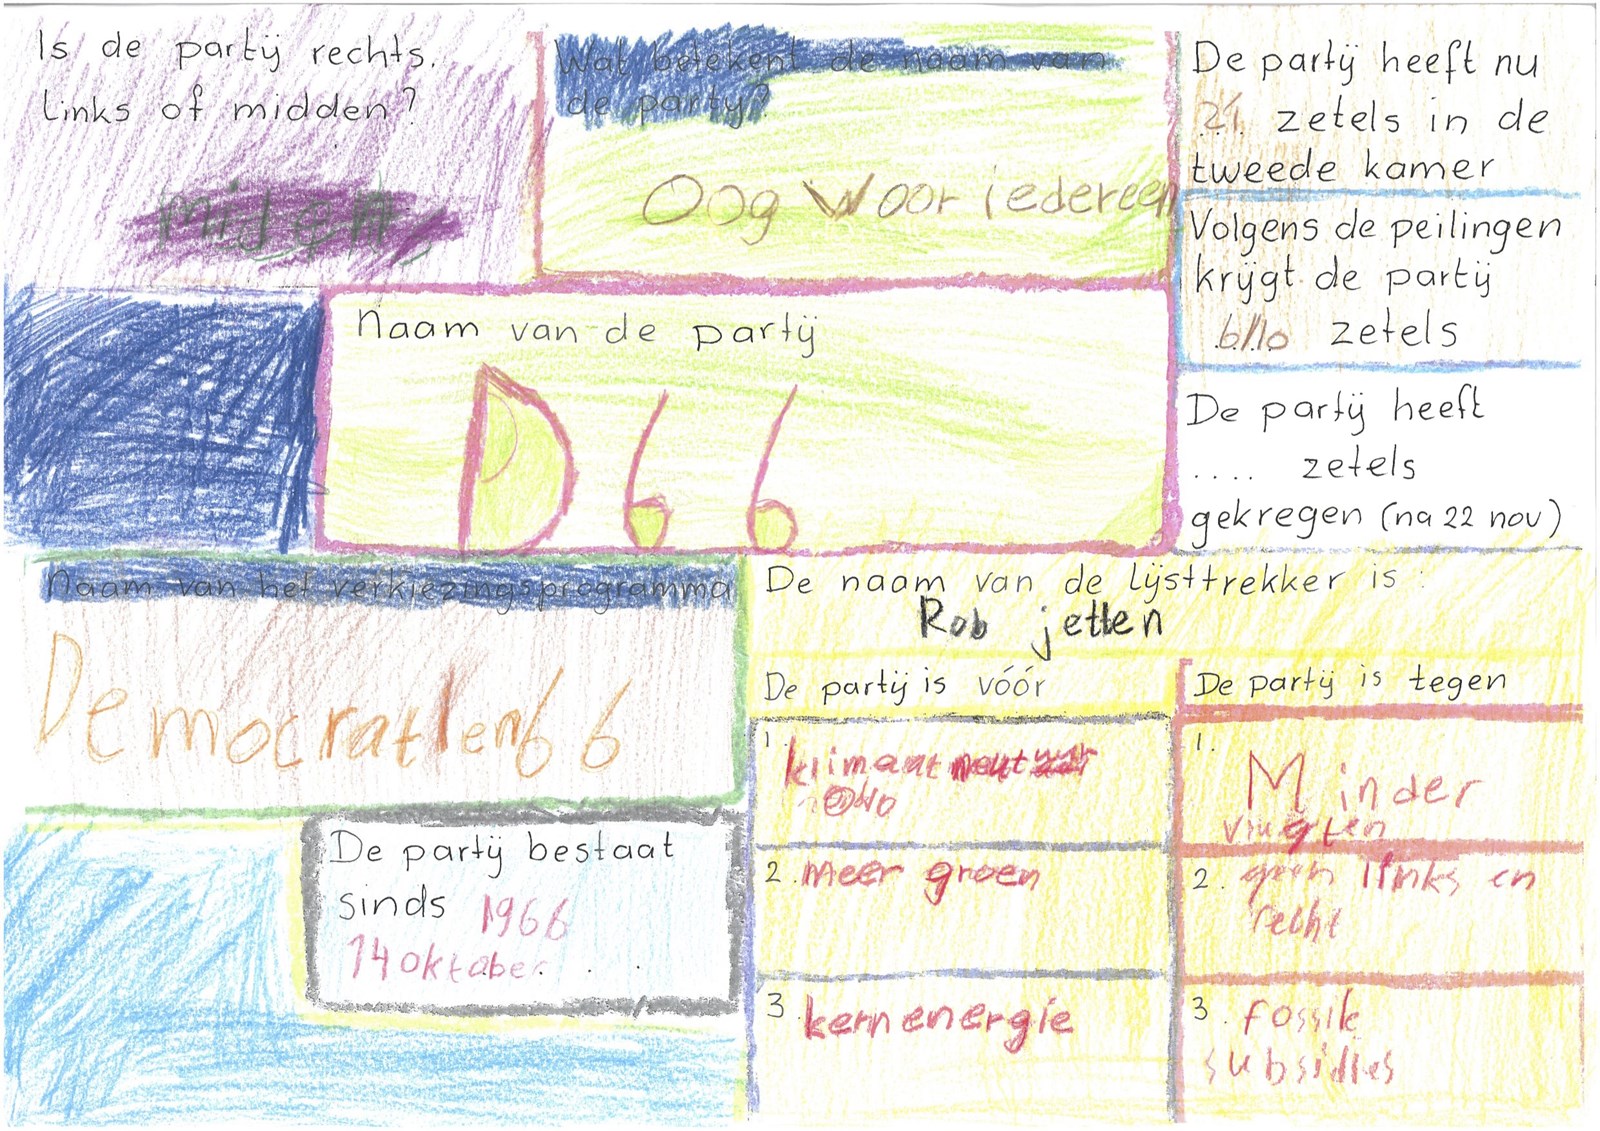 Is de partij rechts.
links of midden?
Wat betekent de naam van
de partij?
Oog Woor iedereen
De partij heeft nu
21 zetels in de
tweede kamer
Volgens de peilingen
krijgt de partij
6/10 zetels
De partij heeft
.... zetels
gekregen (na 22 nov)
Naam van de partij
D66
Naam van het verkiezingsprogramma
Democratien66
De partij bestaat
sinds 1966
14 oktober. . .
De naam van de lijsttrekker is :
Rob jetten
De partij is vóór
1 klimaat neutraal
2. meer groen
3. kernenergie
De partij is tegen
1. Minder
vlugten
2. geen links en
recht
3. fossile
subsidies